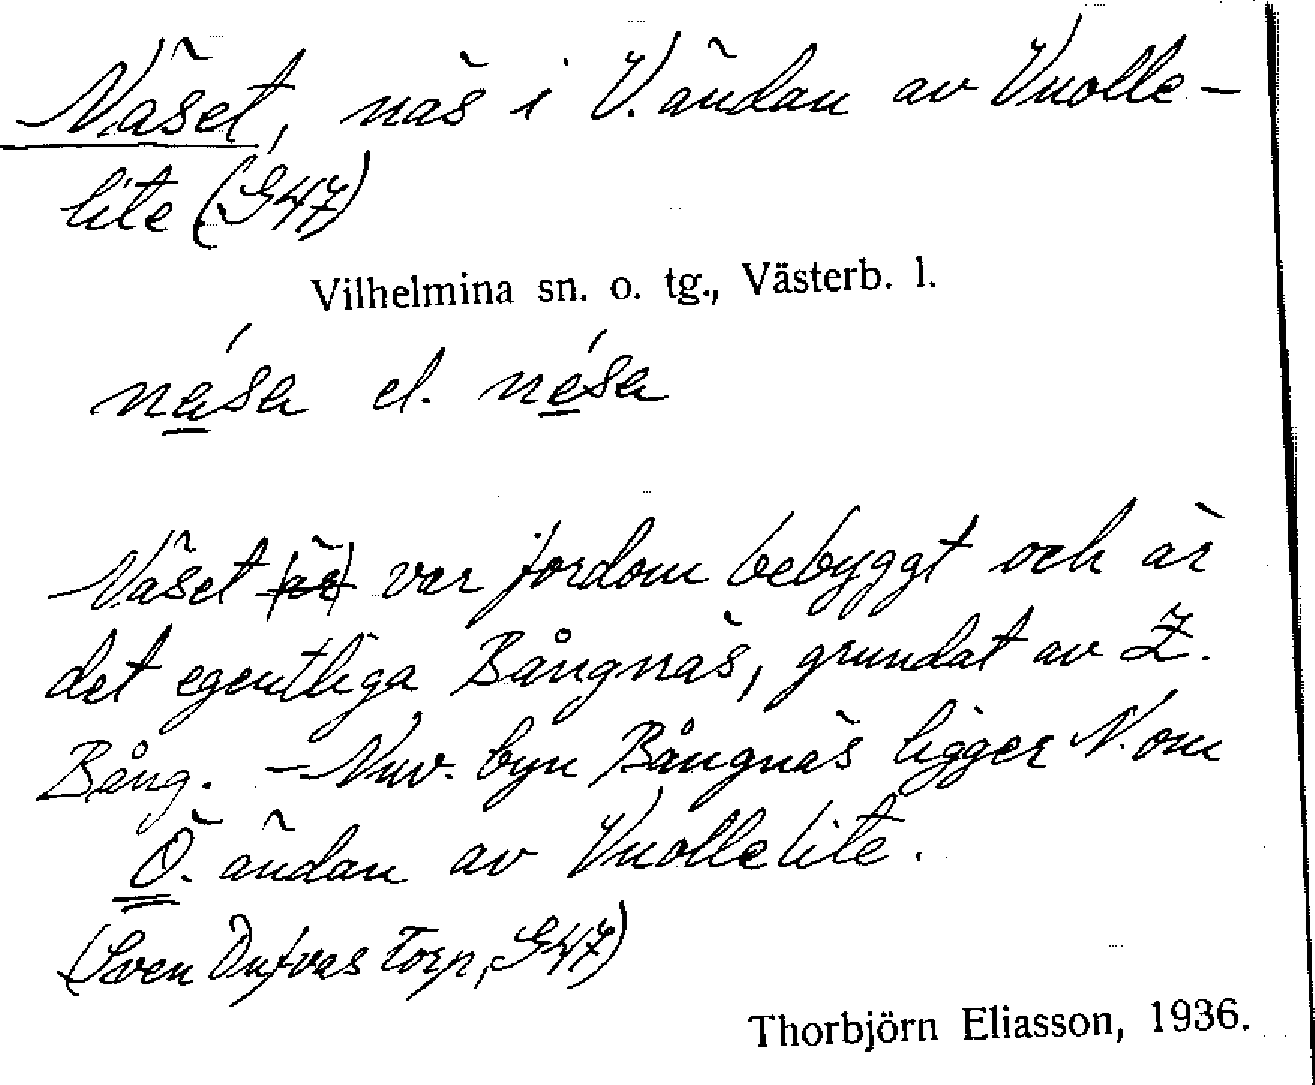 Näset, näs i V. ändan av Vuolle-
lite (G47)
Vilhelmina sn. o. tg., Västerb. l.
nása el. nésa
Näset (är) var fordom bebyggt och är
det egentliga Bångnäs, grundat av Z.
Bång. – Nuv. byn Bångnäs ligger N. om
Ö. ändan av Vuollelite.
(Sven Dufvas Torp, G47)
Thorbjörn Eliasson, 1936.